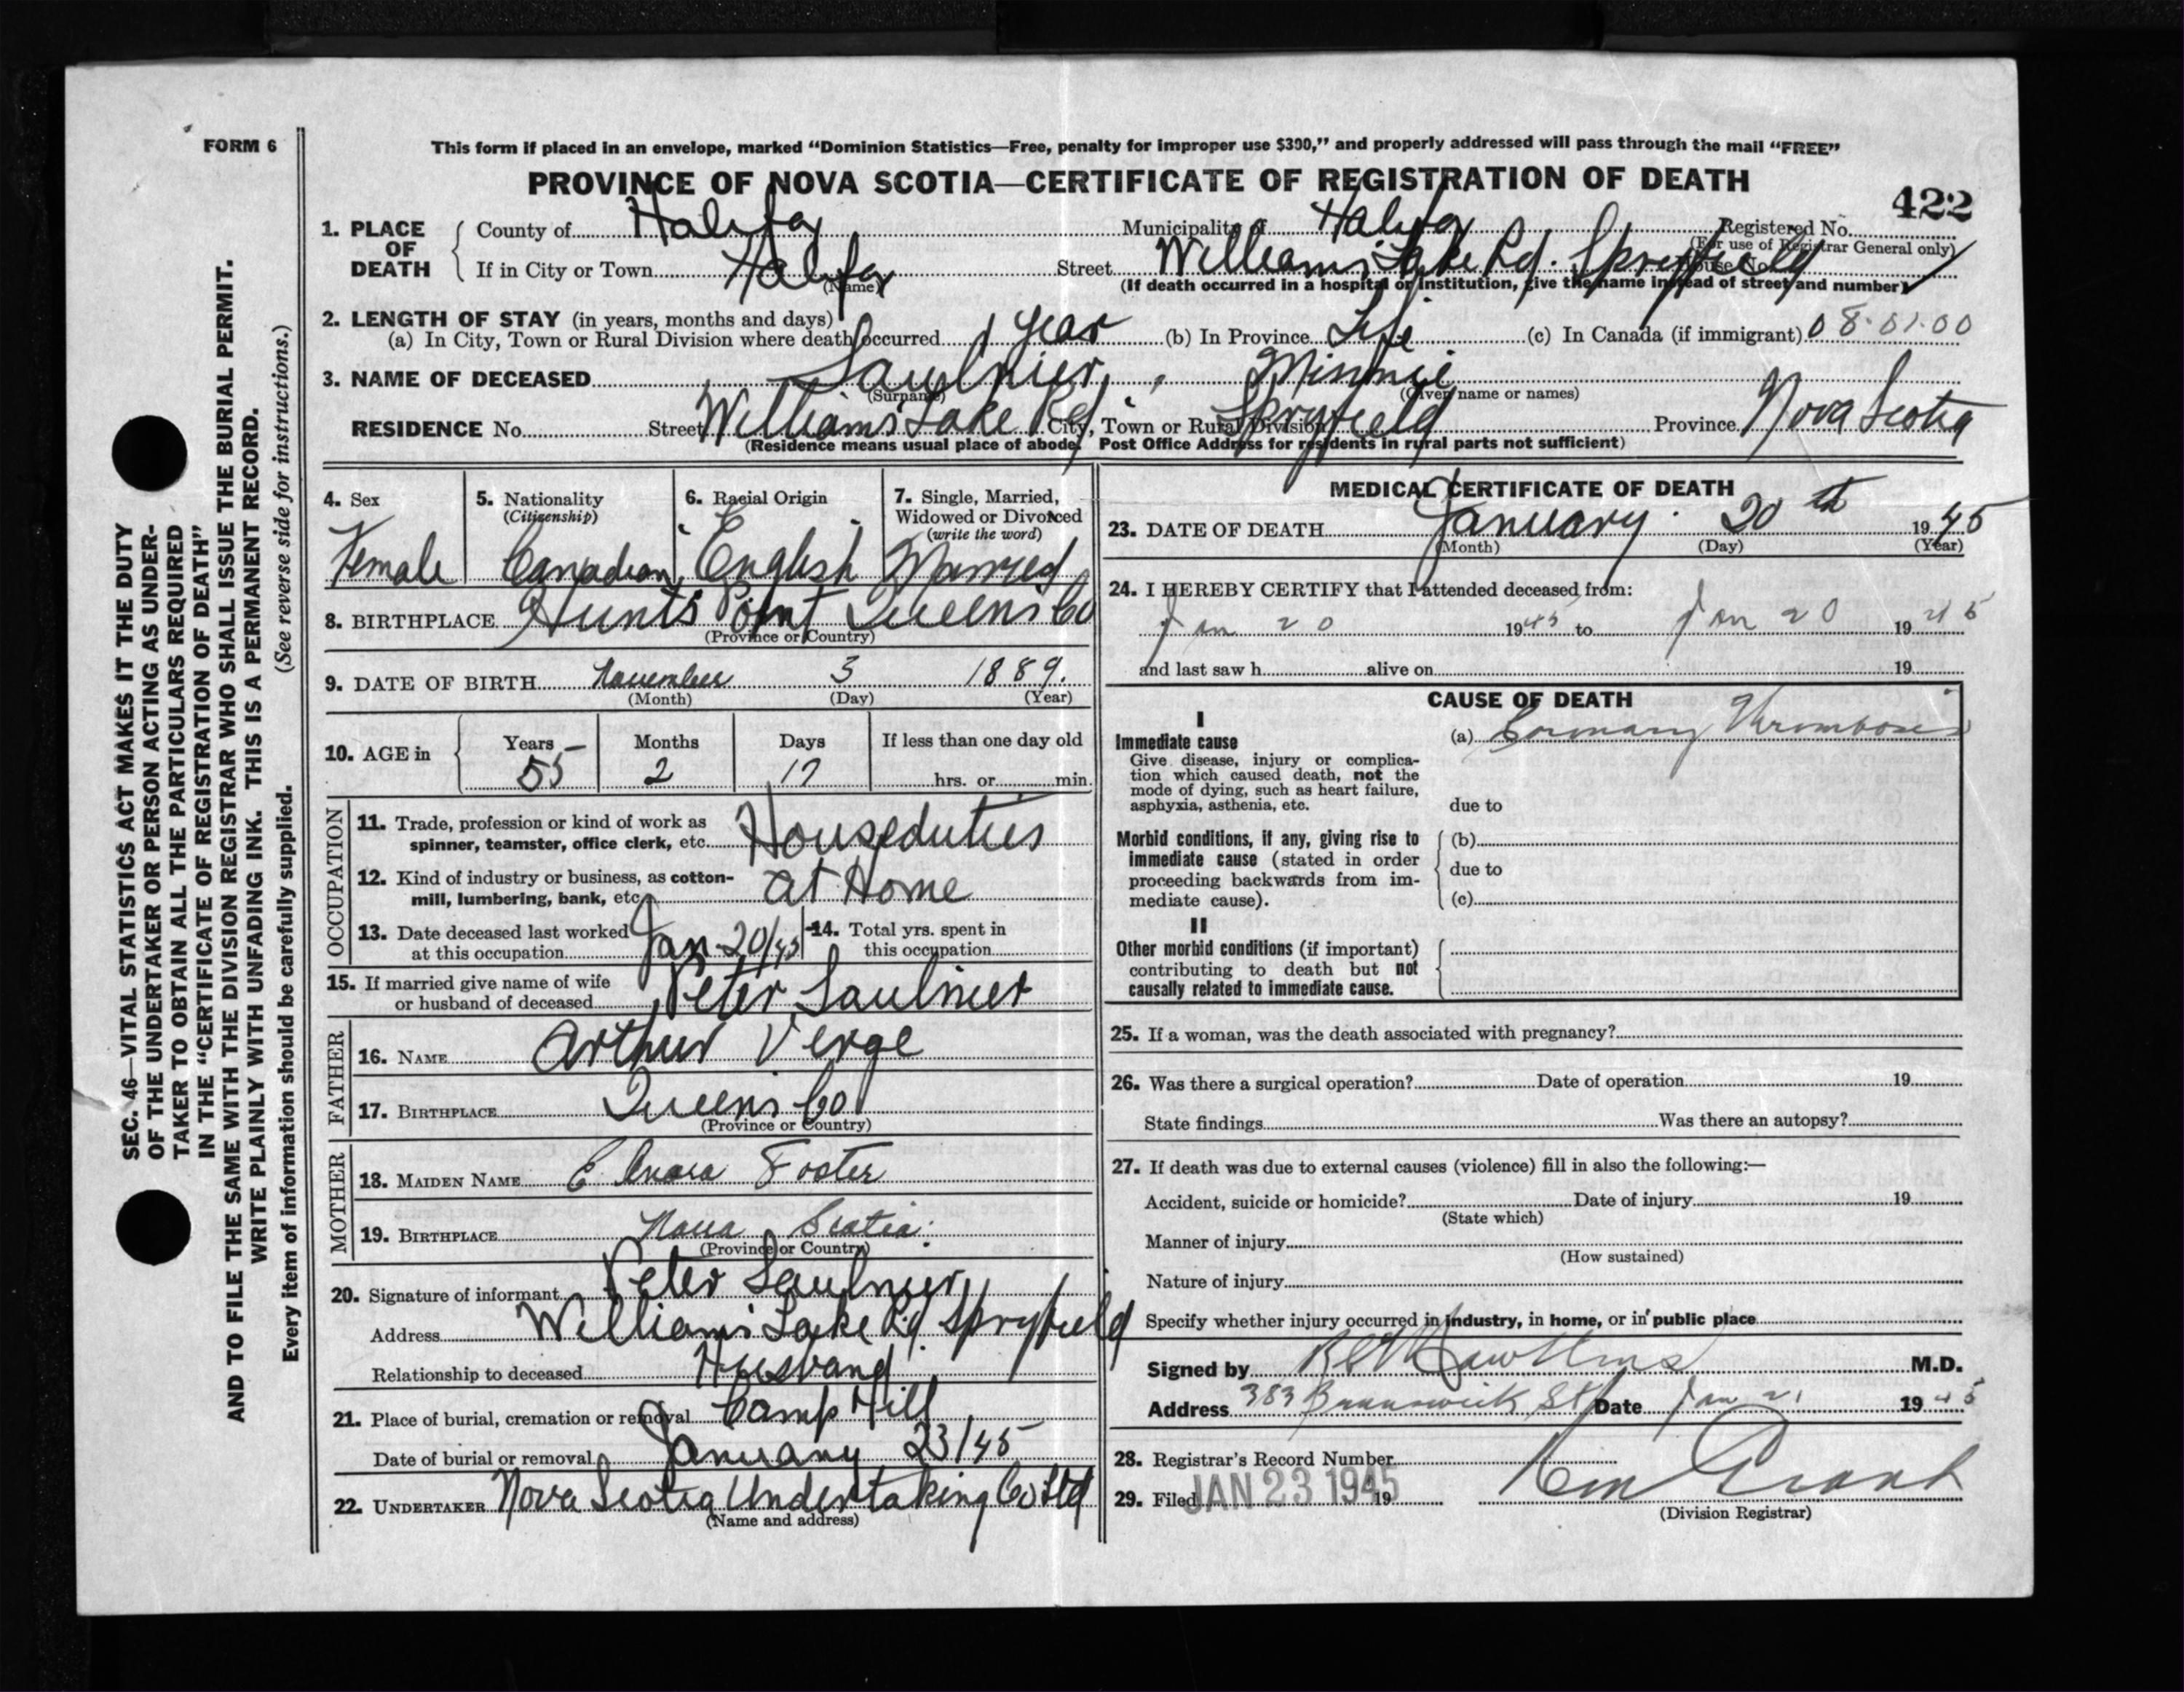 FORM 6
This form if placed in an envelope, marked “Dominion Statistics—Free, penalty for improper use $300,” and properly addressed will pass through the mail “FREE”
PROVINCE OF NOVA SCOTIA—CERTIFICATE OF REGISTRATION OF DEATH
422
1. PLACE OF DEATH { County of Halifax Municipality of Halifax Registered No.
(For use of Registrar General only)
If in City or Town Halifax Street Williams Lake Rd. Spryfield House No.
(Name) (If death occurred in a hospital or institution, give the name instead of street and number)
2. LENGTH OF STAY (in years, months and days)
(a) In City, Town or Rural Division where death occurred 1 year (b) In Province Life (c) In Canada (if immigrant) 08.01.00
3. NAME OF DECEASED Saulnier, Minnie
(Surname) (Given name or names)
RESIDENCE No. Street Williams Lake Rd, City, Town or Rural Division Spryfield Province Nova Scotia
(Residence means usual place of abode. Post Office Address for residents in rural parts not sufficient)
4. Sex 5. Nationality (Citizenship) 6. Racial Origin 7. Single, Married, Widowed or Divorced (write the word)
Female Canadian English Married
8. BIRTHPLACE Hunts Point Queens Co
(Province or Country)
9. DATE OF BIRTH November 3 1889.
(Month) (Day) (Year)
10. AGE in { Years Months Days If less than one day old
55 2 17 hrs. or min.
OCCUPATION
11. Trade, profession or kind of work as
spinner, teamster, office clerk, etc. Houseduties
12. Kind of industry or business, as cotton-
mill, lumbering, bank, etc. at Home
13. Date deceased last worked
at this occupation Jan 20/45
14. Total yrs. spent in
this occupation
15. If married give name of wife
or husband of deceased Peter Saulnier
FATHER
16. NAME Arthur Verge
17. BIRTHPLACE Queens Co
(Province or Country)
MOTHER
18. MAIDEN NAME Foster
19. BIRTHPLACE Nova Scotia.
(Province or Country)
20. Signature of informant Peter Saulnier
Address Williams Lake Rd. Spryfield
Relationship to deceased Husband
21. Place of burial, cremation or removal Camp Hill
Date of burial or removal January 23/45
22. UNDERTAKER Nova Scotia Undertaking Co Ltd
(Name and address)
MEDICAL CERTIFICATE OF DEATH
23. DATE OF DEATH January 20th 1945
(Month) (Day) (Year)
24. I HEREBY CERTIFY that I attended deceased from:
Jan 20 1945 to Jan 20 1945
and last saw h alive on 19
CAUSE OF DEATH
I
Immediate cause (a) Coronary Thrombosis
Give disease, injury or complica-
tion which caused death, not the
mode of dying, such as heart failure,
asphyxia, asthenia, etc. due to
Morbid conditions, if any, giving rise to (b)
immediate cause (stated in order
proceeding backwards from im- due to
mediate cause). (c)
II
Other morbid conditions (if important)
contributing to death but not
causally related to immediate cause.
25. If a woman, was the death associated with pregnancy?
26. Was there a surgical operation? Date of operation 19
State findings Was there an autopsy?
27. If death was due to external causes (violence) fill in also the following:—
Accident, suicide or homicide? Date of injury 19
(State which)
Manner of injury
(How sustained)
Nature of injury
Specify whether injury occurred in industry, in home, or in public place
Signed by M.D.
Address 383 Brunswick St Date Jan 21 1945
28. Registrar's Record Number
29. Filed JAN 23 1945 19
(Division Registrar)
SEC. 46—VITAL STATISTICS ACT MAKES IT THE DUTY
OF THE UNDERTAKER OR PERSON ACTING AS UNDER-
TAKER TO OBTAIN ALL THE PARTICULARS REQUIRED
IN THE “CERTIFICATE OF REGISTRATION OF DEATH”
AND TO FILE THE SAME WITH THE DIVISION REGISTRAR WHO SHALL ISSUE THE BURIAL PERMIT.
WRITE PLAINLY WITH UNFADING INK. THIS IS A PERMANENT RECORD.
Every item of information should be carefully supplied. (See reverse side for instructions.)